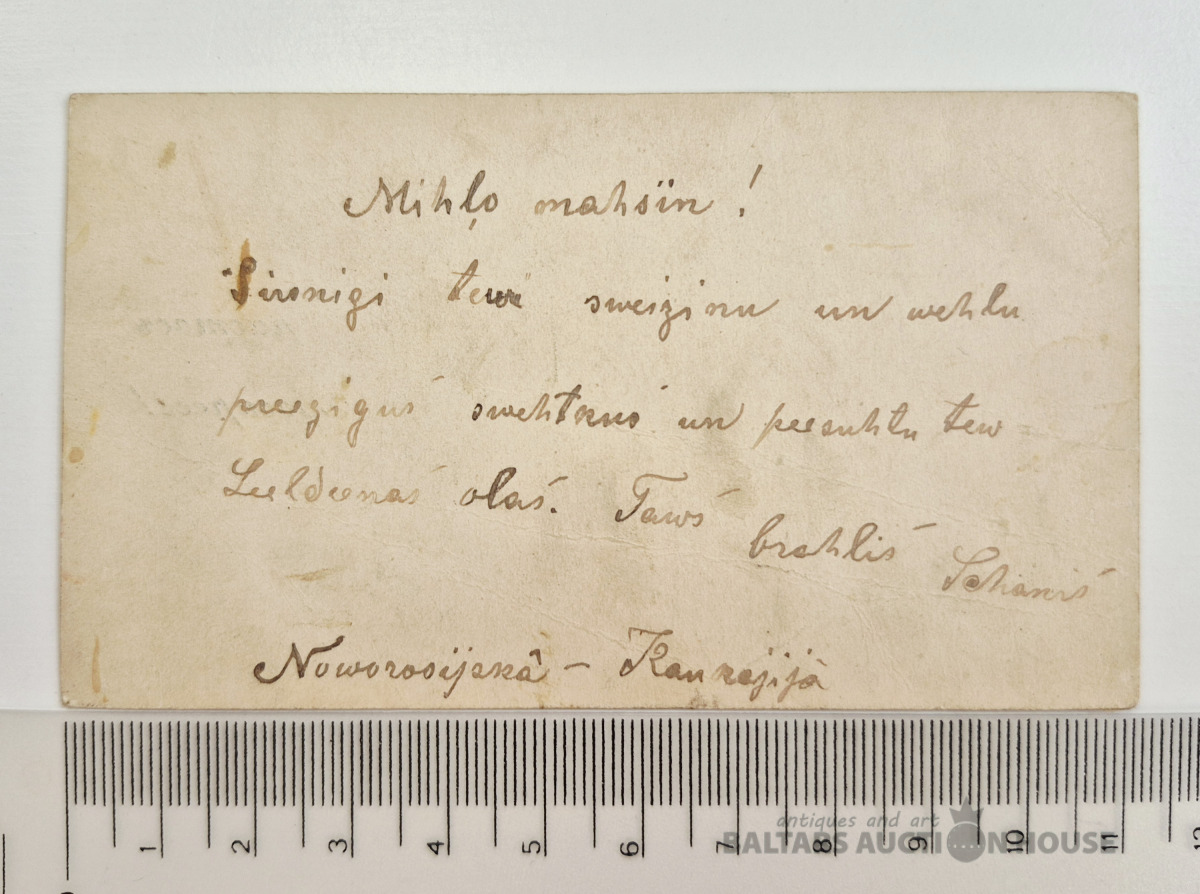 Mihļo mahsiņ !
Sirsnigi tewi sweizinu un wehlu
preezigus swehtkus un peesuhtu tew
Leeldeenas olas. Taws brahlis Schanis
Noworosijskâ – Kaukasijâ
1 2 3 4 5 6 7 8 9 10 11 12
antiques and art
BALTARS AUCTION HOUSE